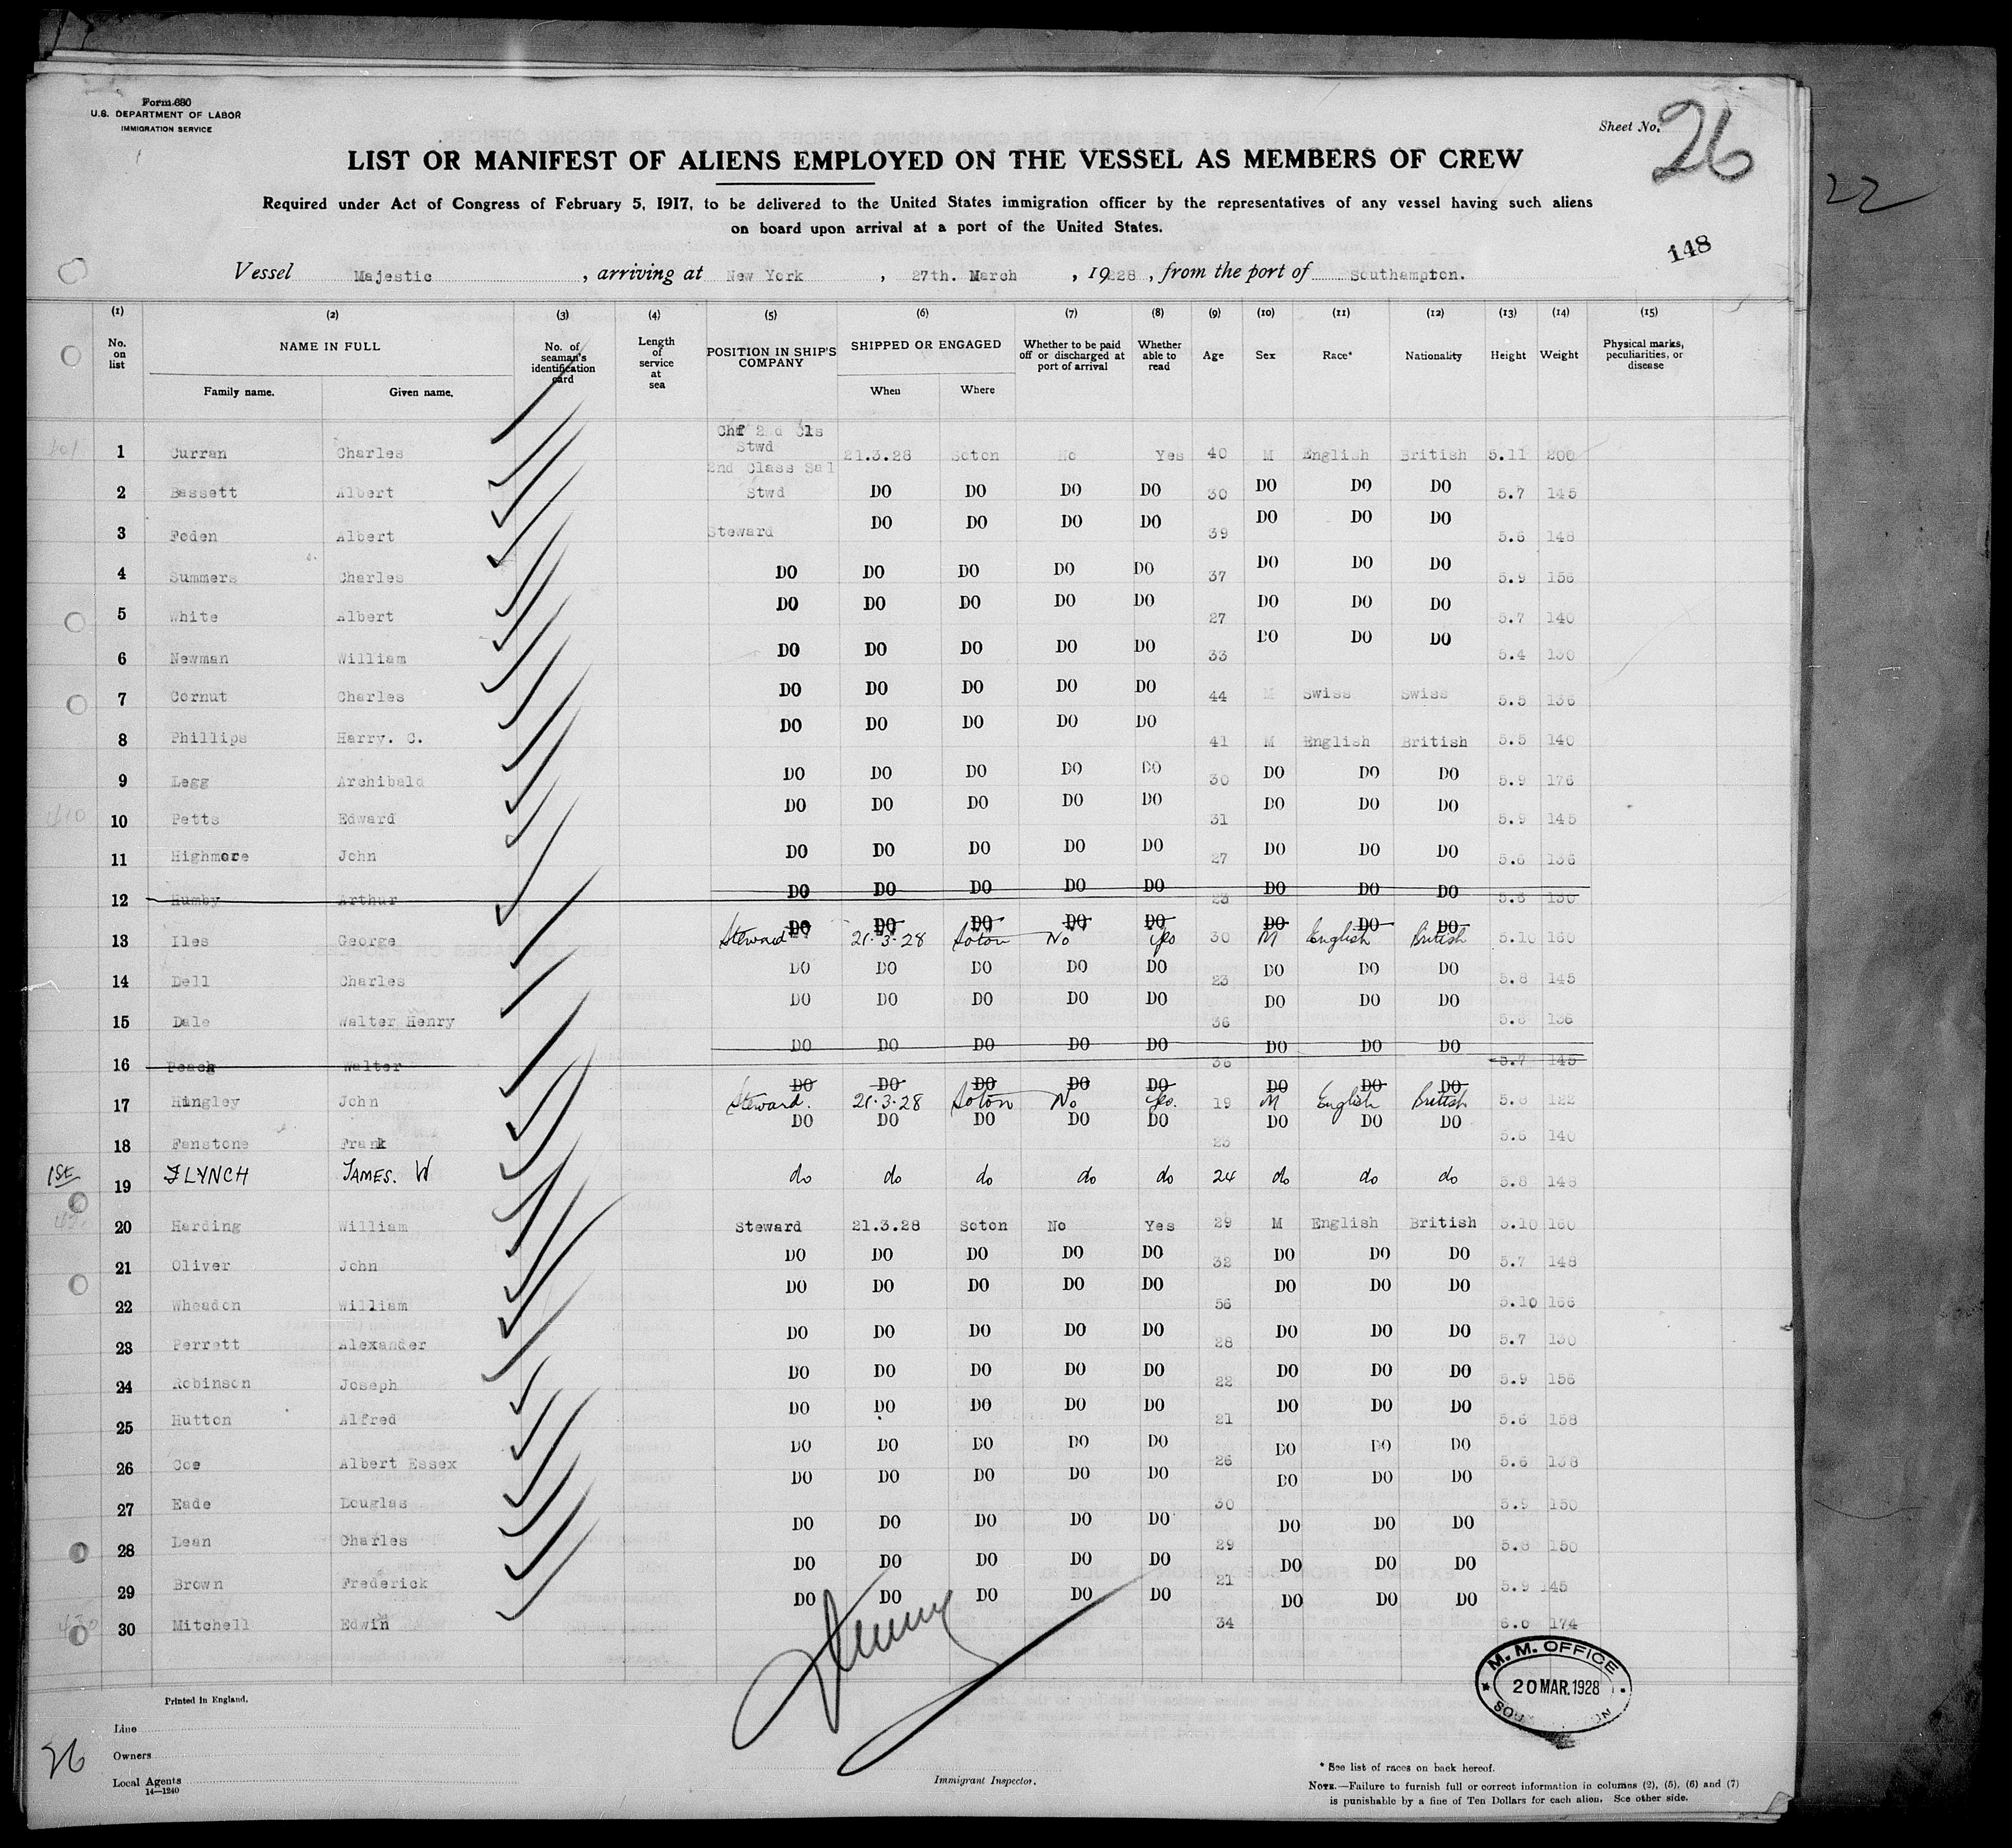 Form 680
U.S. DEPARTMENT OF LABOR
IMMIGRATION SERVICE
Sheet No. 26
22
LIST OR MANIFEST OF ALIENS EMPLOYED ON THE VESSEL AS MEMBERS OF CREW
Required under Act of Congress of February 5, 1917, to be delivered to the United States immigration officer by the representatives of any vessel having such aliens
on board upon arrival at a port of the United States.
148
Vessel Majestic, arriving at New York, 27th. March, 1928, from the port of Southampton.
(1) (2) (3) (4) (5) (6) (7) (8) (9) (10) (11) (12) (13) (14) (15)
No. on list NAME IN FULL Family name. Given name. No. of seaman's identification card Length of service at sea POSITION IN SHIP'S COMPANY SHIPPED OR ENGAGED When Where Whether to be paid off or discharged at port of arrival Whether able to read Age Sex Race* Nationality Height Weight Physical marks, peculiarities, or disease
1 Curran Charles Chf 2nd Cls Stwd 21.3.28 Soton No Yes 40 M English British 5.11 200
2 Bassett Albert 2nd Class Sal Stwd DO DO DO DO 30 DO DO DO 5.7 145
3 Feden Albert Steward DO DO DO DO 39 DO DO DO 5.6 148
4 Summers Charles DO DO DO DO DO 37 DO DO DO 5.9 156
5 White Albert DO DO DO DO DO 27 DO DO DO 5.7 140
6 Newman William DO DO DO DO DO 33 DO DO DO 5.4 130
7 Cornut Charles DO DO DO DO DO 44 M Swiss Swiss 5.5 136
8 Phillips Harry. C. DO DO DO DO DO 41 M English British 5.5 140
9 Legg Archibald DO DO DO DO DO 30 DO DO DO 5.9 176
410 10 Petts Edward DO DO DO DO DO 31 DO DO DO 5.9 145
11 Highmore John DO DO DO DO DO 27 DO DO DO 5.6 136
12 Humby Arthur DO DO DO DO DO 23 DO DO DO 5.6 130
DO DO DO DO DO DO DO DO
13 Iles George Steward 21.3.28 Soton No Yes 30 M English British 5.10 160
14 Dell Charles DO DO DO DO DO 23 DO DO DO 5.8 145
15 Dale Walter Henry DO DO DO DO DO 36 DO DO DO 5.6 136
16 Peach Walter DO DO DO DO DO 36 DO DO DO 5.7 145
DO DO DO DO DO DO DO DO
17 Hingley John Steward. 21.3.28 Soton No Yes. 19 M English British 5.6 122
18 Fanstone Frank DO DO DO DO DO 23 DO DO DO 5.6 140
1ST 19 FLYNCH JAMES. W do do do do do 24 do do do 5.8 148
20 Harding William Steward 21.3.28 Soton No Yes 29 M English British 5.10 160
21 Oliver John DO DO DO DO DO 32 DO DO DO 5.7 148
22 Wheadon William DO DO DO DO DO 56 DO DO DO 5.10 166
23 Perrett Alexander DO DO DO DO DO 28 DO DO DO 5.7 130
24 Robinson Joseph DO DO DO DO DO 22 DO DO DO 5.9 156
25 Hutton Alfred DO DO DO DO DO 21 DO DO DO 5.6 158
26 Coe Albert Essex DO DO DO DO DO 26 DO DO DO 5.6 138
27 Eade Douglas DO DO DO DO DO 30 DO DO DO 5.9 150
28 Lean Charles DO DO DO DO DO 29 DO DO DO 5.8 150
29 Brown Frederick DO DO DO DO DO 21 DO DO DO 5.9 145
30 Mitchell Edwin DO DO DO DO DO 34 DO DO DO 6.0 174
M. M. OFFICE
20 MAR. 1928
Printed in England.
Line
Owners
26
Local Agents
14—1240
Immigrant Inspector.
* See list of races on back hereof.
NOTE.—Failure to furnish full or correct information in columns (2), (5), (6) and (7)
is punishable by a fine of Ten Dollars for each alien. See other side.